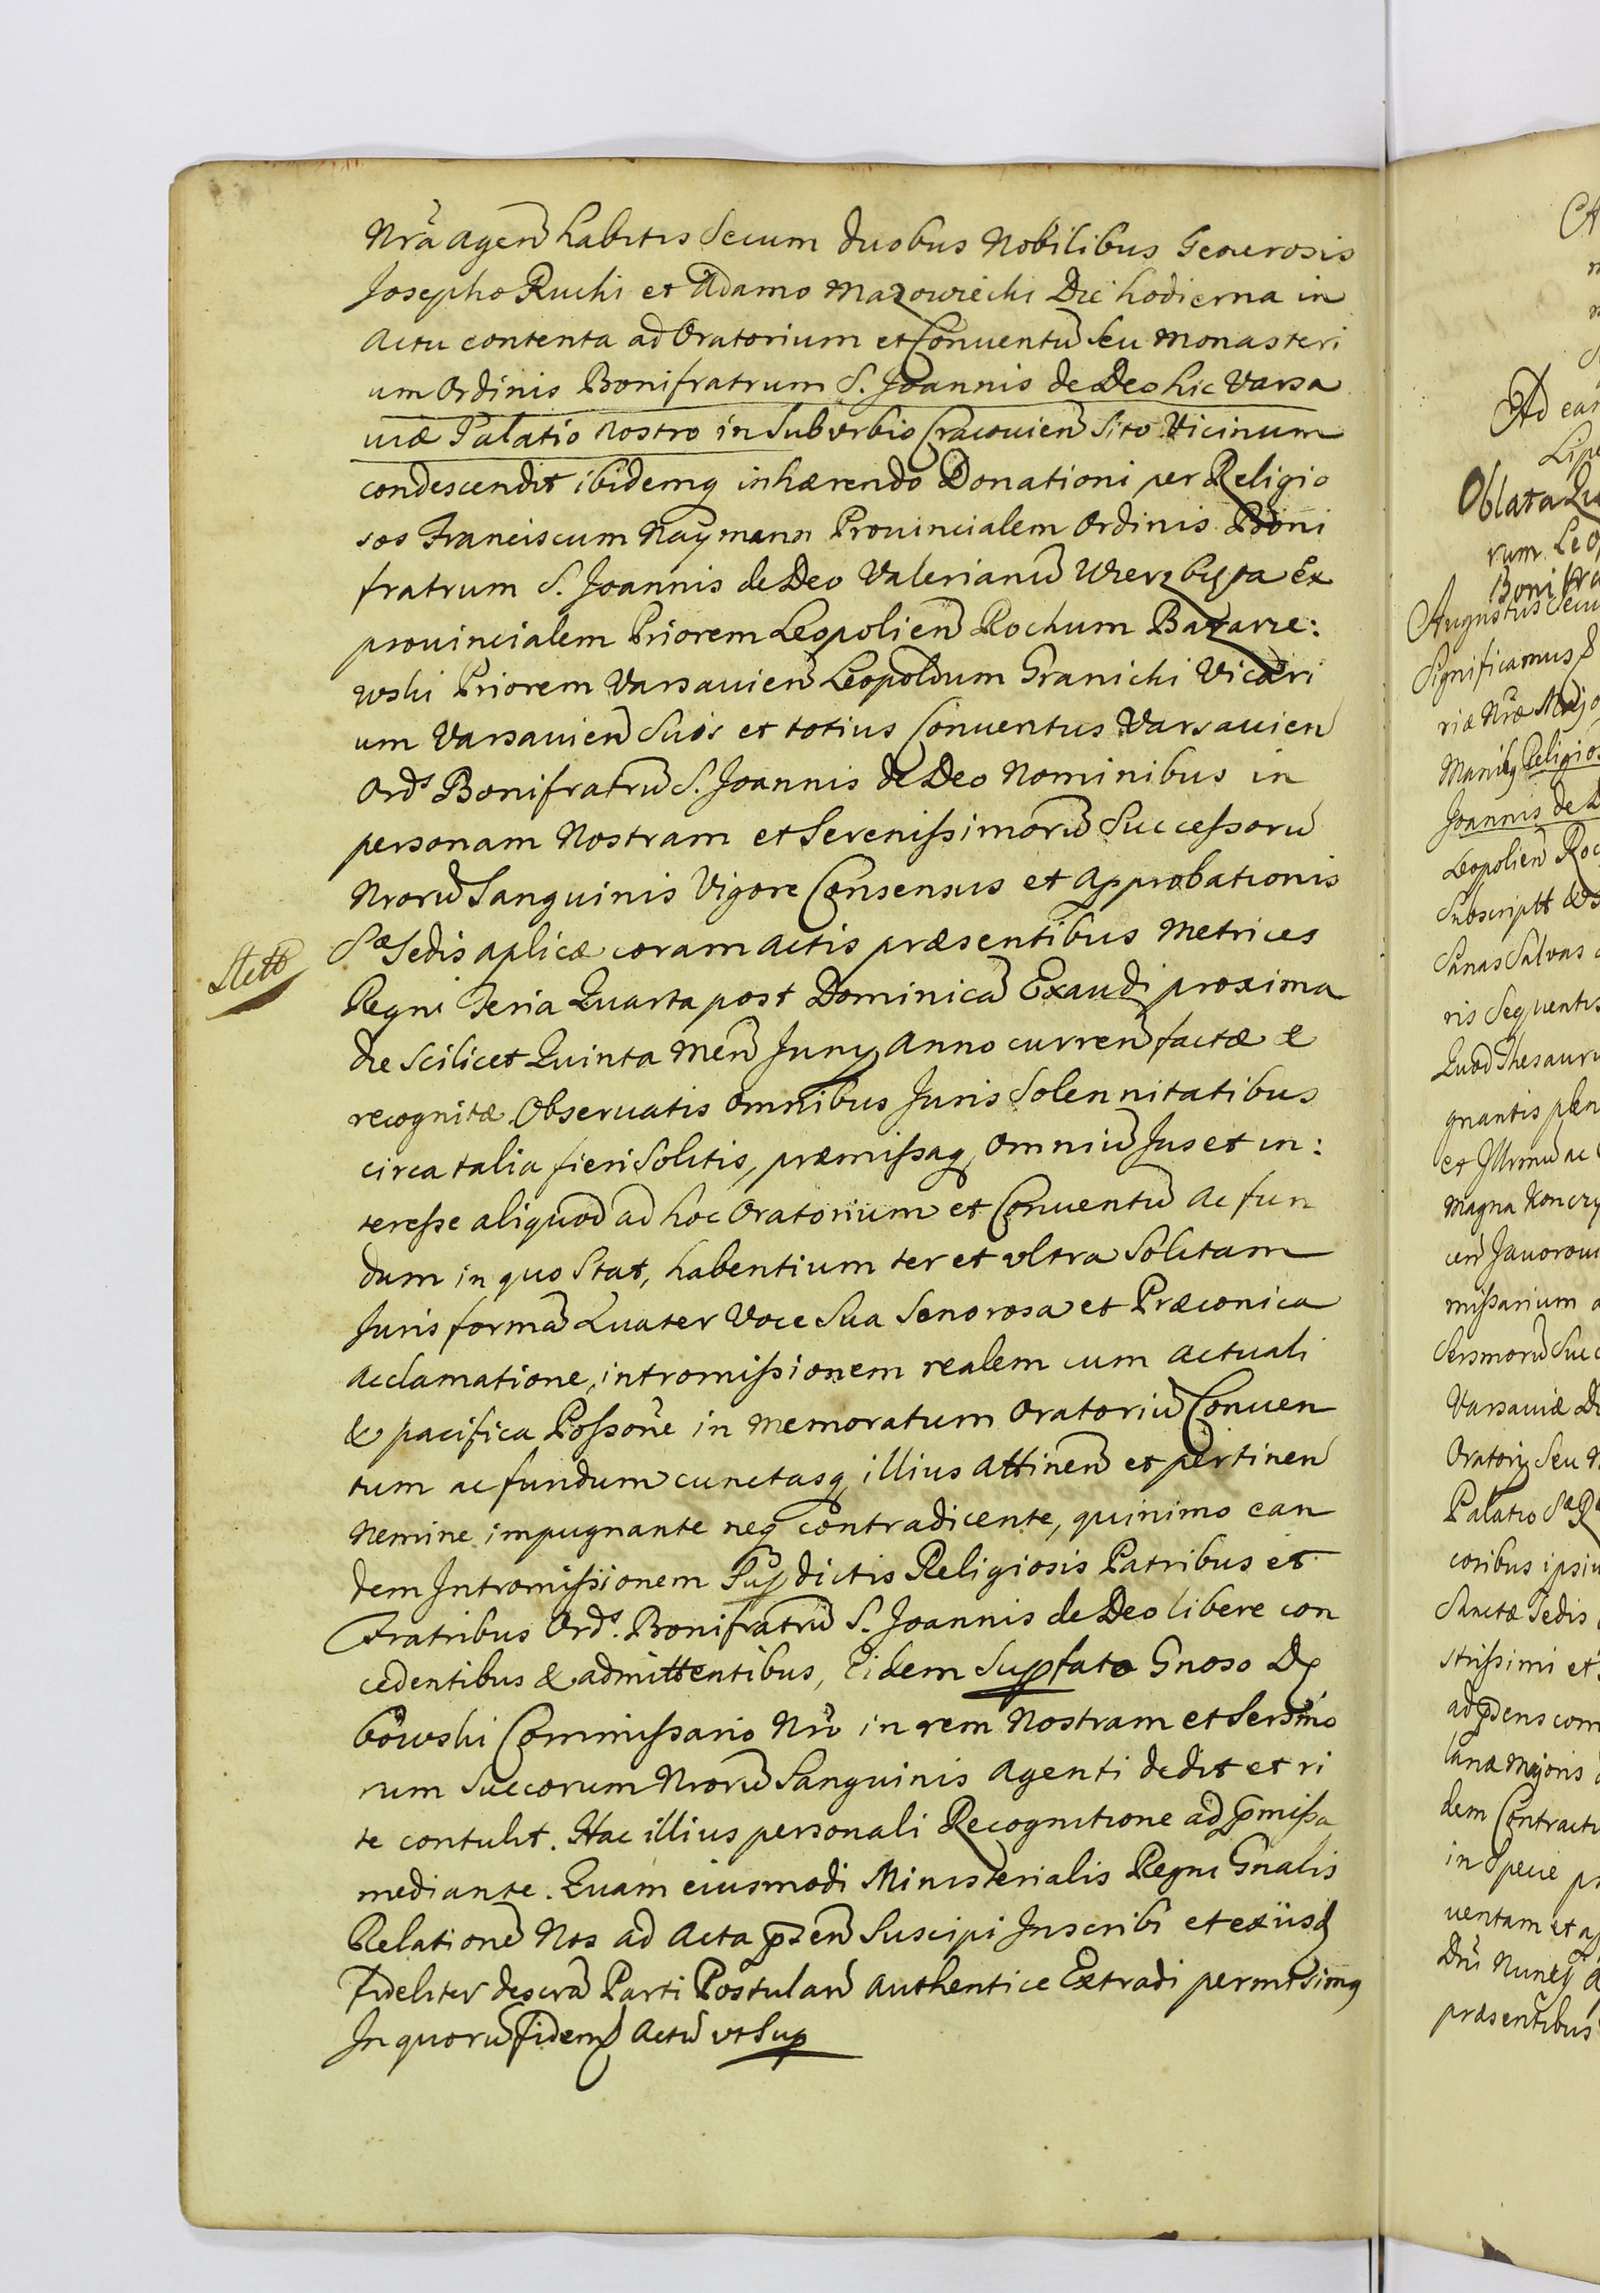 Nrã agen̄ habitis Secum duobus Nobilibus Generosis
Josepho Ruchi et Adamo Mazowiecki Die hodierna in
Actu contenta ad Oratorium et Conuentū seu Monasteri
um Ordinis Bonifratrum S. Joannis de Deo hic Varsa
uiæ Palatio nostro in Suburbio Cracouien̄ Sito Vicinum
condescendit ibidemq inhærendo Donationi per Religio
sos Franciscum Naymann Prouincialem Ordinis Boni
fratrum S. Joannis de Deo Valerianū Wierzbięta Ex
prouincialem Priorem Leopolien̄ Rochum Bazarze:
wski Priorem Varsauien̄ Leopoldum Granichi Vicari
um Varsauien̄ Suis et totius Conuentus Varsauien̄
Ords Bonifratrū S. Joannis de Deo Nominibus in
personam Nostram et Serenissimorū Successorū
Nrorū Sanguinis Vigore Consensus et Approbationis
Sæ Sedis Aplicæ coram actis præsentibus Metrices
Regni Feria Quarta post Dominicā Exaudi proxima
die scilicet Quinta Men̄ Junÿ Anno curren̄ factæ &
recognitæ Observatis omnibus Juris Solennitatibus
circa talia fieri Solitis, præmissaq omniū Jus et in:
teresse aliquod ad hoc Oratorium et Conuentū ac fun
dum in quo Stat, habentium ter et vltra Solitam
Juris formā Quater Voce Sua Senorosa et Præconica
Acclamatione, intromissionem realem cum actuali
& pacifica Possoñe in Memoratum Oratoriū Conuen
tum ac fundum cunctasq illius Attinen̄ et pertinen̄
Nemine impugnante neq contradicente, quinimo ean
dem Intromissionem Sup dictis Religiosis Patribus et
Fratribus Ords. Bonifratrū S. Joannis de Deo libere con
cedentibus & admittentibus, Eidem Supfato Gnoso Dę
bowski Commissario Nrō in rem Nostram et Sersmo
rum Succorum Nrorū Sanguinis Agenti dedit et ri
te contulit. Hac illius personali Recognitione ad p̄missa
mediante. Quam eiusmodi Ministerialis Regni Gnalis
Relationē Nos ad Acta p̄sen̄ Suscipi Inscribi et ex iisd
Fideliter descrā Parti Postulan̄ authentice Extradi permisimq
In quorū Fidem Actū vt Sup
Oblata
rum Leo
Augustus Secu
Significamus
riæ Nræ Majo
Religios
Joannis de D
Leopolien̄ Roc
Sanas Saluas
ris Sequentis
Quod Thesauru
gnantis
Magna
missarium
Sersmorū Succ
Varsauiæ
Oratorÿ Seu
Palatio
coribus ipsiu
Sanctæ Sedis
strissimi et
dem Contractu
in Specie
Dni Nuncÿ
præsentibus